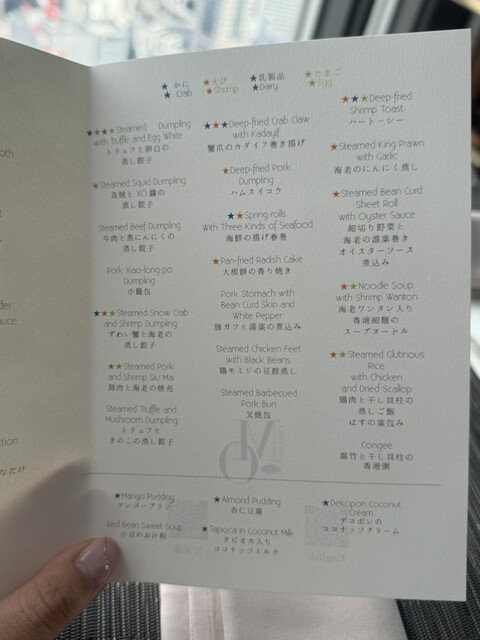 ★ かに ★ えび ★乳製品 ★たまご
★ Crab ★Shrimp ★Dairy ★Egg
★★★★Steamed Dumpling
with Truffle and Egg White
トリュフと卵白の
蒸し餃子
★Steamed Squid Dumpling
烏賊と XO 醤の
蒸し餃子
Steamed Beef Dumpling
牛肉と黒にんにくの
蒸し餃子
Pork Xiao-long-po
Dumpling
小籠包
★★★Steamed Snow Crab
and Shrimp Dumpling
ずわい蟹と海老の
蒸し餃子
★★Steamed Pork
and Shrimp Siu Mai
豚肉と海老の焼売
Steamed Truffle and
Mushroom Dumpling
トリュフと
きのこの蒸し餃子
★★★Deep-fried Crab Claw
with Kadayif
蟹爪のカダイフ巻き揚げ
★Deep-fried Pork
Dumpling
ハムスイコウ
★★Spring-rolls
with Three Kinds of Seafood
海鮮の揚げ春巻
★Pan-fried Radish Cake
大根餅の香り焼き
Pork Stomach with
Bean Curd Skin and
White Pepper
豚ガツと湯葉の煮込み
Steamed Chicken Feet
with Black Beans
鶏モミジの豆鼓蒸し
Steamed Barbecued
Pork Bun
叉焼包
★★★Deep-fried
Shrimp Toast
ハートーシー
★Steamed King Prawn
with Garlic
海老のにんにく蒸し
★Steamed Bean Curd
Sheet Roll
with Oyster Sauce
細切り野菜と
海老の湯葉巻き
オイスターソース
煮込み
★★Noodle Soup
with Shrimp Wanton
海老ワンタン入り
香港細麺の
スープヌードル
★★Steamed Glutinous
Rice
with Chicken
and Dried Scallop
鶏肉と干し貝柱の
蒸しご飯
はすの葉包み
Congee
腐竹と干し貝柱の
香港粥
★Mango Pudding
マンゴープリン
Red Bean Sweet Soup
小豆のお汁粉
★Almond Pudding
杏仁豆腐
★Tapioca in Coconut Milk
タピオカ入り
ココナッツミルク
★Dekopon Coconut
Cream
デコポンの
ココナッツクリーム